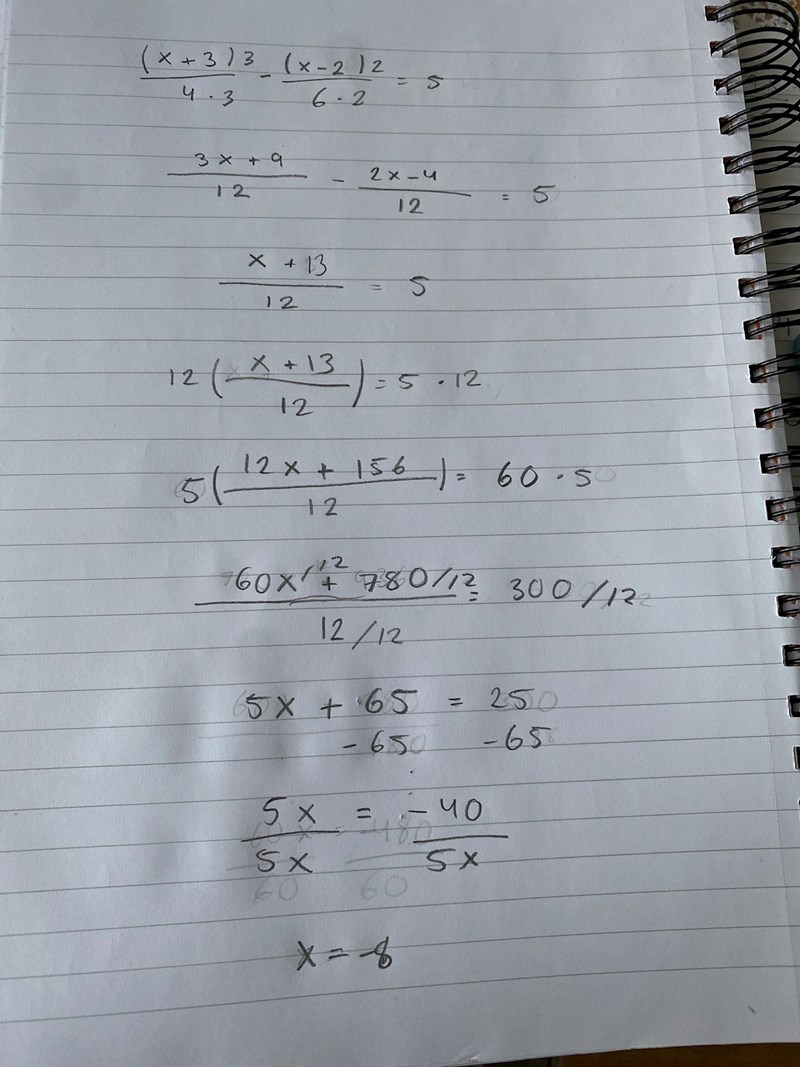 (x + 3)3 / 4 · 3 - (x - 2)2 / 6 · 2 = 5
3x + 9 / 12 - 2x - 4 / 12 = 5
x + 13 / 12 = 5
12 ( x + 13 / 12 ) = 5 · 12
5 ( 12x + 156 / 12 ) = 60 · 5
60x/12 + 780/12 / 12/12 = 300/12
5x + 65 = 25
-65 -65
5x / 5x = -40 / 5x
x = -8